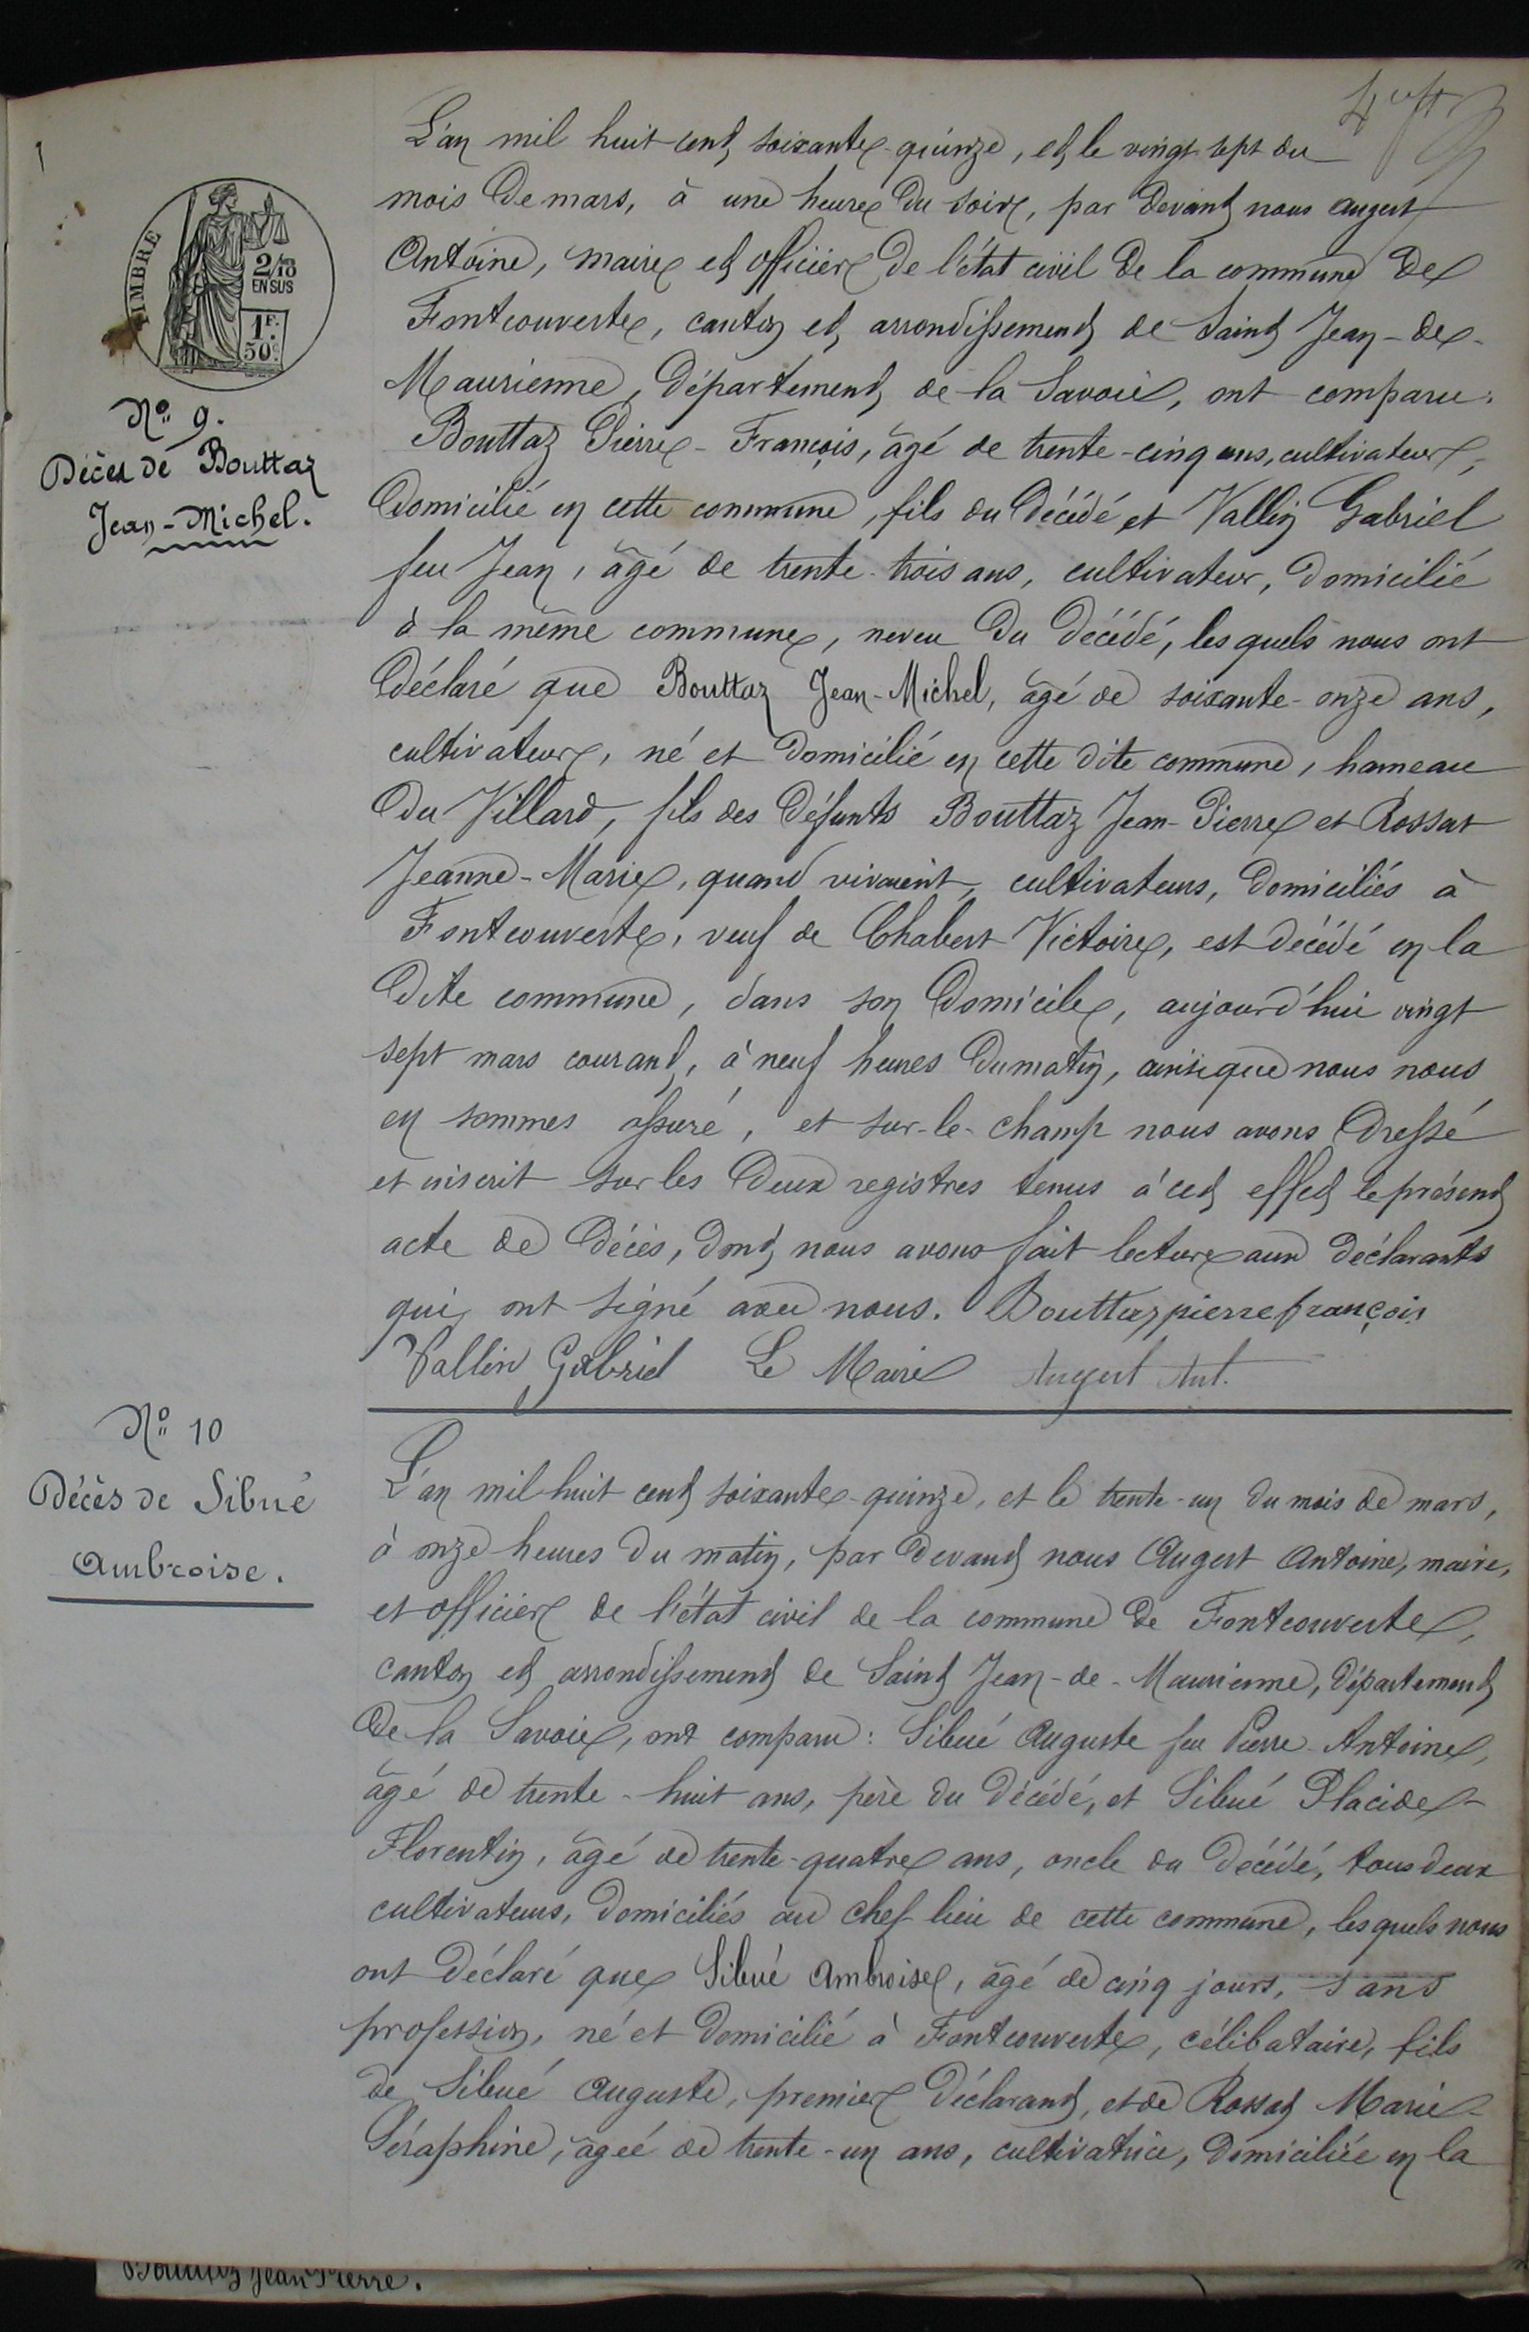 TIMBRE
2/10
EN SUS
1F.
50c.
N° 9.
Décès de Bouttaz
Jean-Michel.
L'an mil huit cent soixante-quinze, et le vingt-sept du
mois de mars, à une heure du soir, par devant nous Augert
Antoine, maire et officier de l'état civil de la commune de
Fontcouverte, canton et arrondissement de Saint Jean-de-
Maurienne, département de la Savoie, ont comparu:
Bouttaz Pierre-François, âgé de trente-cinq ans, cultivateur,
domicilié en cette commune, fils du décédé et Vallin Gabriel
feu Jean, âgé de trente-trois ans, cultivateur, domicilié
à la même commune, neveu du décédé, les quels nous ont
déclaré que Bouttaz Jean-Michel, âgé de soixante-onze ans,
cultivateur, né et domicilié en cette dite commune, hameau
du Villard, fils des défunts Bouttaz Jean-Pierre et Rossat
Jeanne-Marie, quand vivaient, cultivateurs, domiciliés à
Fontcouverte, veuf de Chabert Victoire, est décédé en la
dite commune, dans son domicile, aujourd'hui vingt
sept mars courant, à neuf heures du matin, ainsi que nous nous
en sommes assuré, et sur-le-champ nous avons dressé
et inscrit sur les deux registres tenus à cet effet le présent
acte de décès, dont nous avons fait lecture aux déclarants
qui ont signé avec nous. Bouttaz pierre françois
Vallin Gabriel Le Maire Augert Ant.
N° 10
Décès de Sibué
Ambroise.
L'an mil huit cent soixante-quinze, et le trente-un du mois de mars,
à onze heures du matin, par devant nous Augert Antoine, maire,
et officier de l'état civil de la commune de Fontcouverte,
canton et arrondissement de Saint Jean-de-Maurienne, département
de la Savoie, ont comparu: Sibué Auguste feu Pierre-Antoine,
âgé de trente-huit ans, père du décédé, et Sibué Placide-
Florentin, âgé de trente-quatre ans, oncle du décédé, tous deux
cultivateurs, domiciliés au chef-lieu de cette commune, les quels nous
ont déclaré que Sibué Ambroise, âgé de cinq jours, sans
profession, né et domicilié à Fontcouverte, célibataire, fils
de Sibué Auguste, premier déclarant, et de Rossat Marie-
Séraphine, âgée de trente-un ans, cultivatrice, domiciliée en la
Bouttaz Jean Pierre.